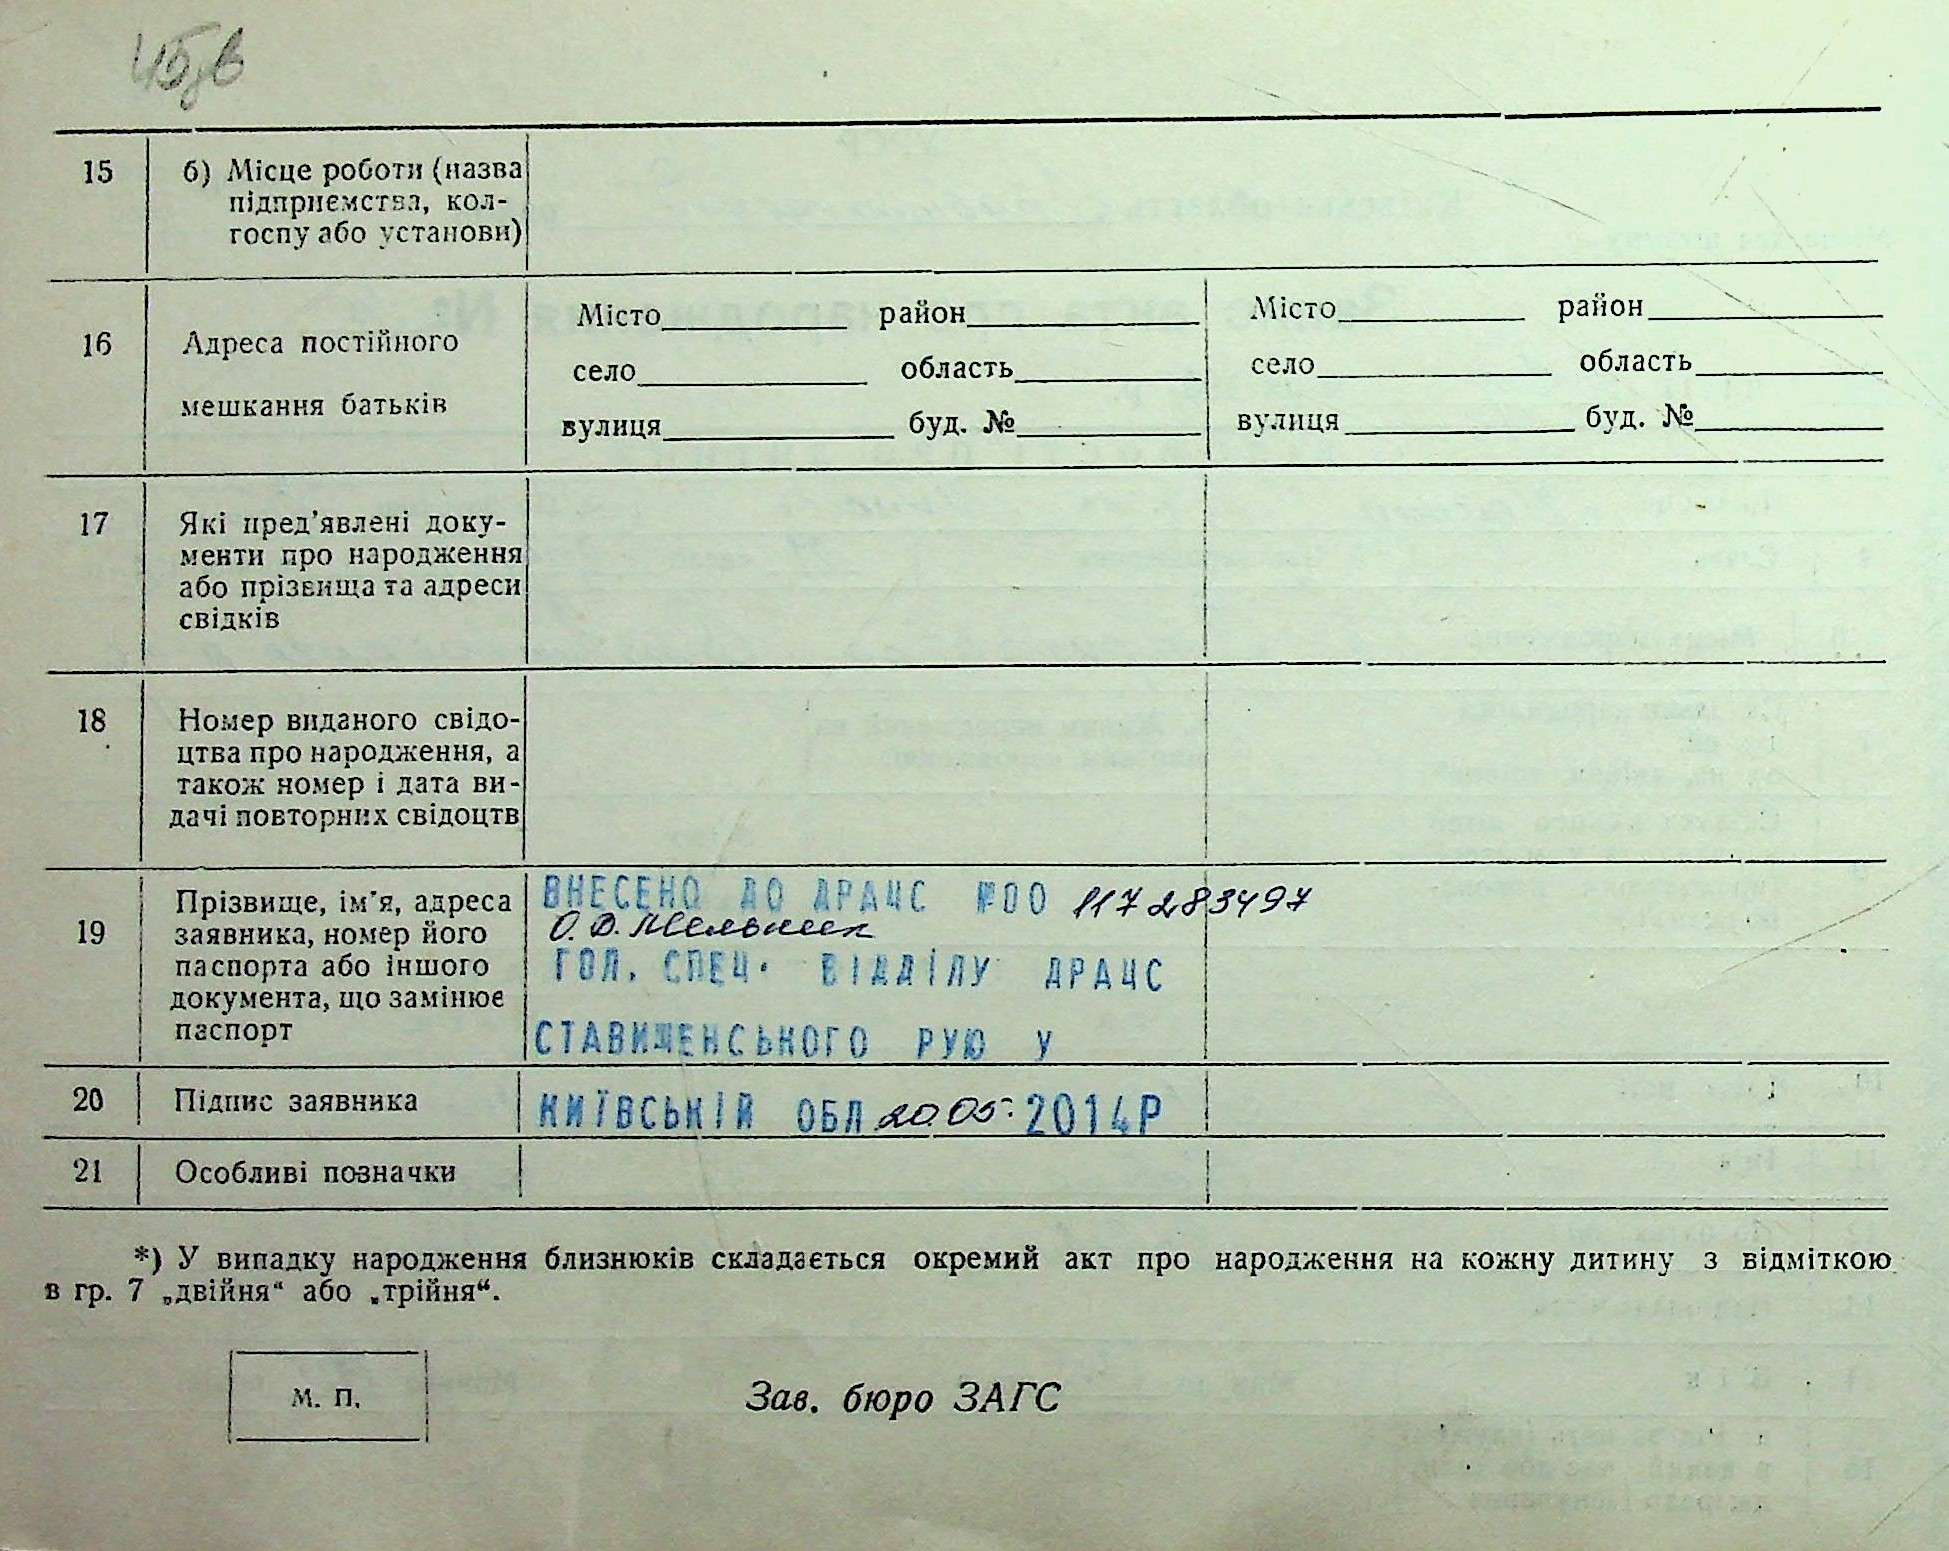 45 зв
15 б) Місце роботи (назва
підприємства, кол-
госпу або установи)
16 Адреса постійного
мешкання батьків
Місто район
село область
вулиця буд. №
Місто район
село область
вулиця буд. №
17 Які пред'явлені доку-
менти про народження
або прізвища та адреси
свідків
18 Номер виданого свідо-
цтва про народження, а
також номер і дата ви-
дачі повторних свідоцтв
19 Прізвище, ім'я, адреса
заявника, номер його
паспорта або іншого
документа, що замінює
паспорт
ВНЕСЕНО ДО ДРАЦС №00 117283497
О. В. Мельник
ГОЛ. СПЕЦ. ВІДДІЛУ ДРАЦС
СТАВИЩЕНСЬКОГО РУЮ У
20 Підпис заявника
КИЇВСЬКІЙ ОБЛ 20.05. 2014Р
21 Особливі позначки
*) У випадку народження близнюків складається окремий акт про народження на кожну дитину з відміткою
в гр. 7 „двійня“ або „трійня“.
М. П.
Зав. бюро ЗАГС